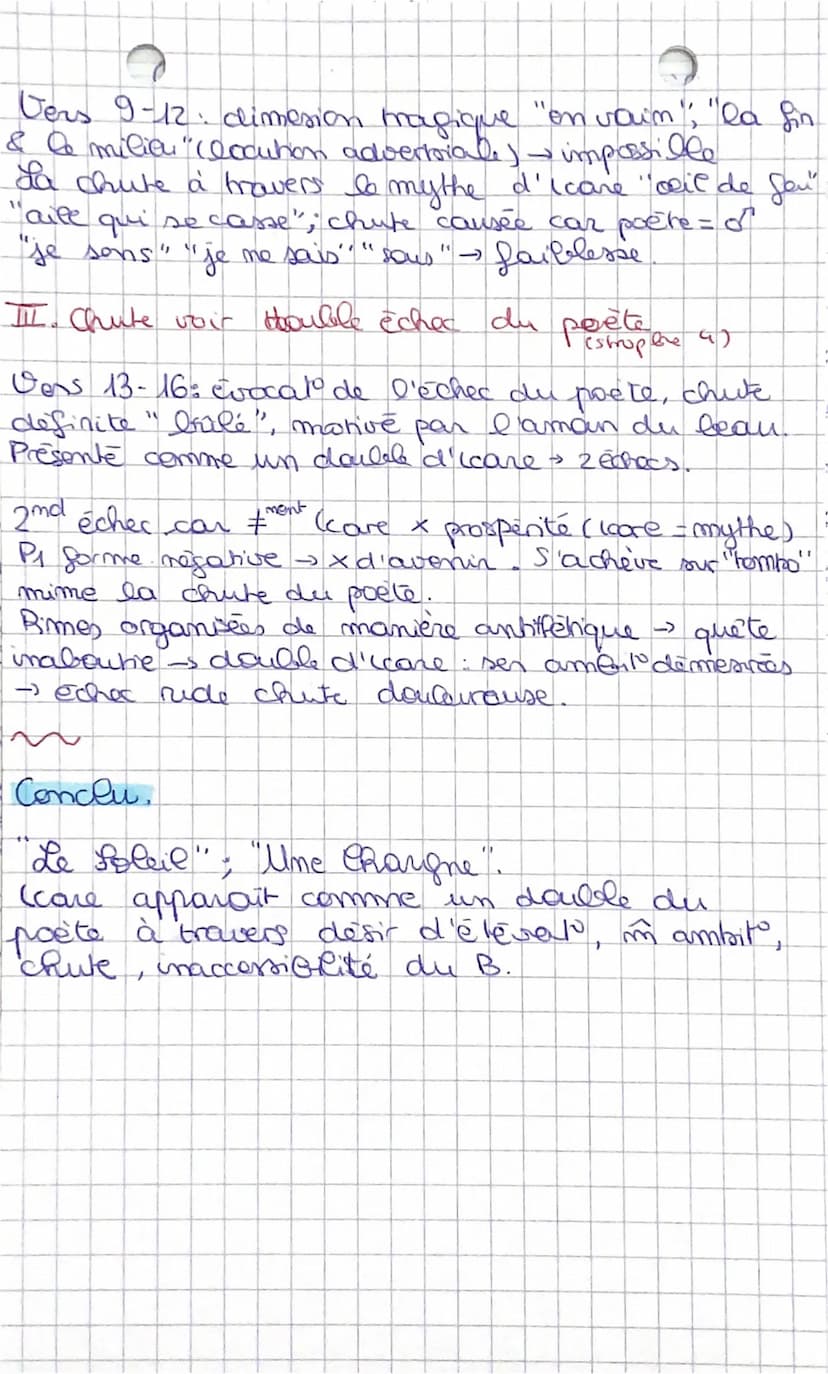 Vers 9-12 : dimension tragique "en vain"; "la fin
& le milieu" (locution adverbiale) → impossible
La chute à travers le mythe d'Icare "œil de feu"
"aile qui se casse"; chute causée car poète = ♂
"je sens" "je ne sais" "sous" → faiblesse.
III. Chute voir double échec du poète
(strophe 4)
Vers 13-16 : évocat° de l'échec du poète, chute
définite "brûlé", motivé par l'amour du beau.
Présenté comme un double d'Icare → 2 échecs.
2nd échec car ≠ment Icare x prospérité (Icare = mythe)
P1 forme négative → x d'avenir. S'achève sur "tombo"
mime la chute du poète.
Rimes organisées de manière antithétique → quête
inaboutie → double d'Icare : ses ambit° démesurés
→ échec rude chute douloureuse.
Conclu.
"Le Soleil" ; "Une Charogne".
Icare apparaît comme un double du
poète à travers désir d'élévat°, m̂ ambit°,
chute, inaccessibilité du B.